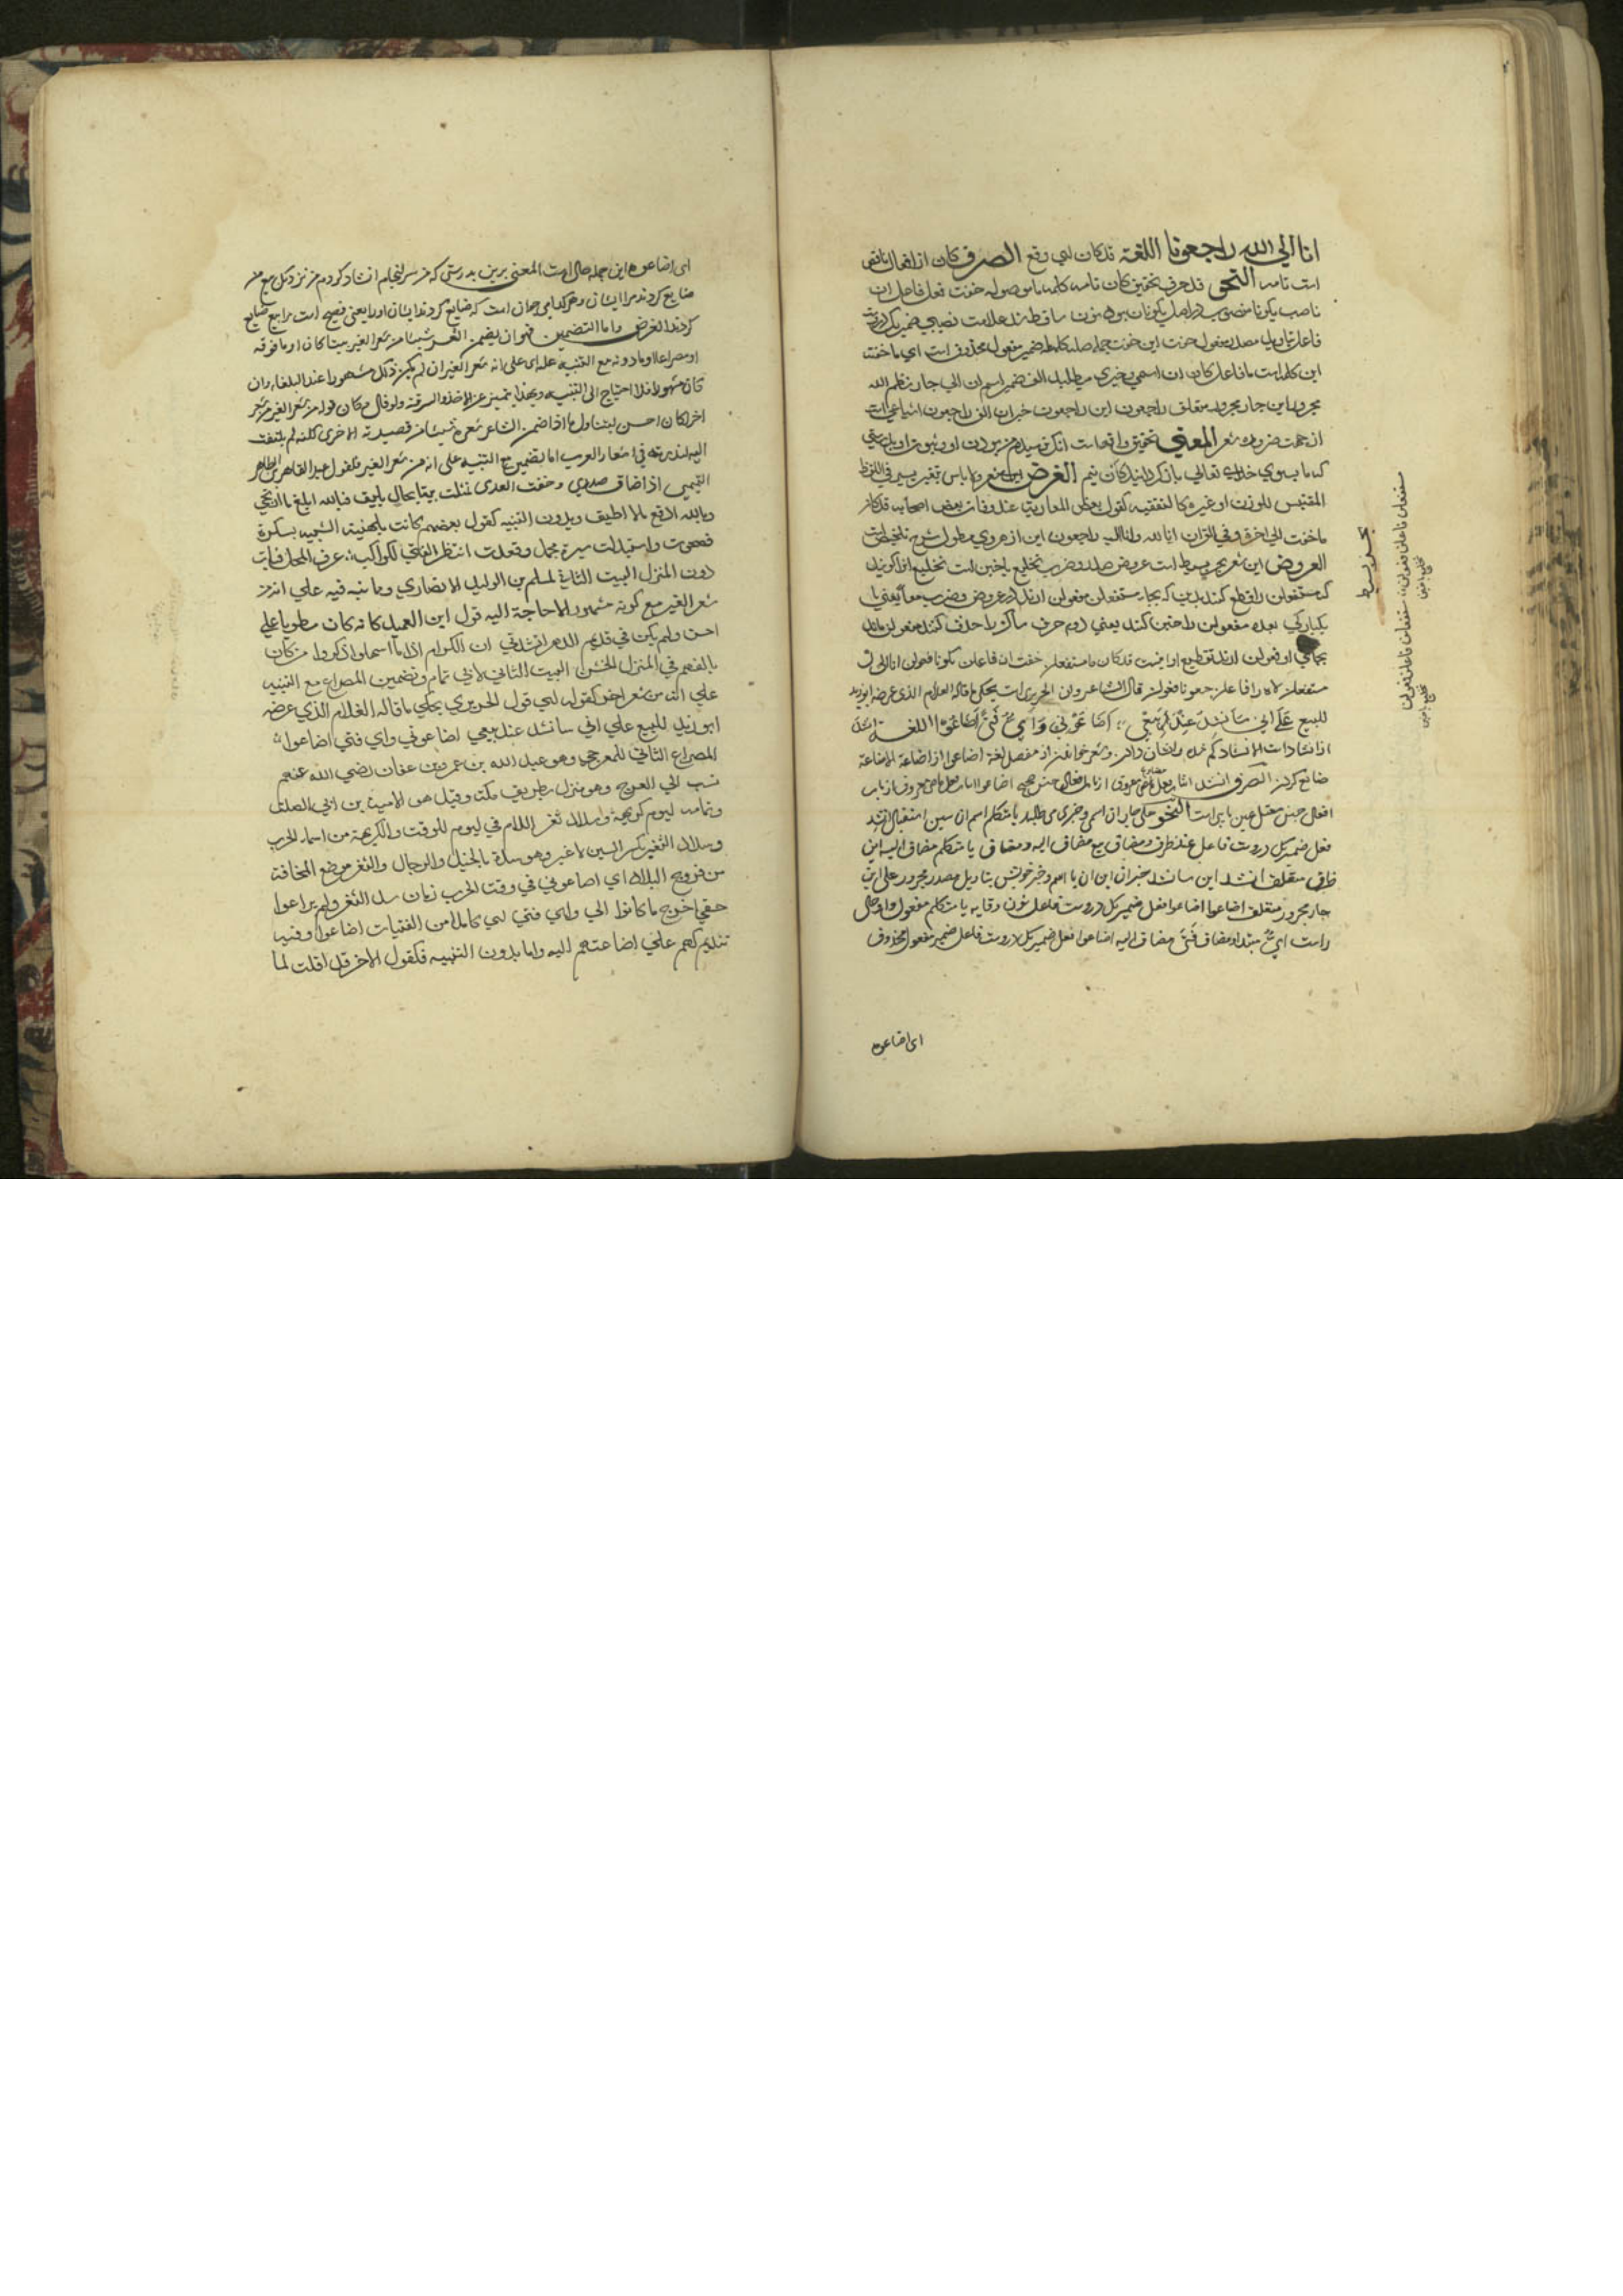 انا الي الله راجعونا اللغة قدكان اي وقع الصرف كان از افعال ناقص
است تامه النحو قد حرف تحقيق كان تامه كلمه ما موصوله خفت فعل فاعل ان
ناصب يكونا منصوب در اصل يكونان بوده نون ساقط شد علامت نصبي ضمير
فاعل بتاويل مصدر مفعول خفت اين خفت جمله صله كلمه ما ضمير مفعول محذوف است اي ما خفته
اين كلمه است ما فاعل كان ان اسمي و خبري ميطلبد الف ضمير اسم ان الي جار نام الله
مجرور اين جار مجرور متعلق راجعون اين راجعون خبر ان الف راجعون اشباعي است
از جهت ضرورت شعر المعني تحقيق واقع است انكه ترسيدم من بودن او
كه ما بسوي خداي تعالي باز كردانيد كان نيم الغرض اين شعر ولا باس بتغير يسير في اللفظ
المقتبس للوزن او غيره كالتقفيه كقول بعض المغاربة عند وفات بعض اصحابه قد كان
ما خفت الي اخره وفي القران انا لله وانا اليه راجعون اين از هروي مطول شرح تلخيص است
العروض اين شعر بحر بسيط است عروض صدر و ضرب تخليع يا خبن است تخليع انرا كويند
كه مستفعلن را قطع كنند بدين كه بجاي مستفعلن مفعولن ارند در عروض و ضرب معا يعني با
يكباركي بعده مفعولن را خبن كنند يعني دوم حرف ساكن را حذف كنند معولن ماند
بجاي او فعولن ارند تقطيع او اينست قد كان ما مستفعلن خفت ان فاعلن يكونا فعولن انا الي ال
مستفعلن لاه را فاعلن جعونا فعولن قال الشاعر وان الحريري است يحكي ما قاله الغلام الذي عرضه ابوزيد
للبيع عَلَي اني سَاُنشِدُ عِندَ بَيْعِي ؛ اَضَاعُوْنِي وَاَيَّ فَتًي اَضَاعُوْا اللغة انشد
از انشادات الانشاد كم شده را نشان دادن و شعر خواندن از مفصل لغة اضاعوا از اضاعة الاضاعة
ضايع كردن الصرف انشد انشا فعل مضارع معروف از باب افعال جنس صحيح اضاعوا انا فعل ماضي معروف از باب
افعال جنس معتل عين يا ي است النحو علي جار ان اسمي و خبري مي طلبد يا متكلم اسم ان سين استقبال انشد
فعل ضمير كه دروست فاعل عند ظرف و مضاف بيع مضاف اليه و مضاف يا متكلم مضاف اليه اين
ظرف متعلق انشد اين سانشد خبر ان اين ان با اسم و خبر خويش بتاويل مصدر مجرور علي اين
جار مجرور متعلق اضاعوا اضاعوا فعل ضمير كه دروست فاعل نون وقايه يا متكلم مفعول واو حال
راست ايّ مبتدا و مضاف فَتًي مضاف اليه اضاعوا فعل ضمير كه دروست فاعل ضمير مفعول محذوف
اي اضاعوه
بحر بسيط
مستفعلن فاعلن فعولن مستفعلن فاعلن فعولن
اي اضاعوه اين جمله حال است المعني برين بدرستي كه من سرانجام انشاد كردم من نزديك بيع من
ضايع كردند مرا ايشان و هر كدامي جوان است كه ضايع كردند ايشان او را يعني فصيح است را بيع ضايع
كردند الغرض واما التضمين فهو ان يضمن الشعر شيئا من شعر الغير بيتا كان او ما فوقه
او مصراعا او ما دونه مع التنبيه عليه اي علي انه شعر الغير ان لم يكن ذلك مشهورا عند البلغاء وان
كان مشهورا فلا احتياج الي التنبيه وبهذا يتميز عن الاخذ والسرقة ولو قال مكان قوله من شعر الغير من شعر
اخر لكان احسن ليتناول ما اذا ضمن الشاعر شعره شيئا من قصيدته الاخري لكنه لم يلتفت
اليه لندرته في اشعار العرب اما تضمين مع التنبيه علي انه من شعر الغير فكقول عبد القاهر بن الطاهر
التميمي اذا ضاق صدري وخفت العدي تمثلت بيتا بحالي يليق فبالله ابلغ ما ارتجي
وبالله ادفع ما لا اطيق وبدون التنبيه كقول بعضهم كانت بلهنية الشبيبة بسكرة
فصحوت واستبدلت سيرة مجمل وقعدت انتظر الفناء كراكب ؛ عرف المحل فبات
دون المنزل البيت الثاني لمسلم بن الوليد الانصاري وما نبه فيه علي انه من
شعر الغير مع كونه مشهورا لا حاجة اليه قول ابن العميد كانه كان مطويا علي
احن ولم يكن في قديم الدهر انشدني ان الكرام اذا ما اسهلوا ذكروا من كان
يالفهم في المنزل الخشن البيت الثاني لابي تمام وتضمين المصراع مع التنبيه
علي انه من شعر اخر كقوله اي قول الحريري يحكي ما قاله الغلام الذي عرضه
ابو زيد للبيع علي اني سانشد عند بيعي اضاعوني واي فتي اضاعوا ؛
المصراع الثاني للعرجي وهو عبد الله بن عمر بن عفان رضي الله عنهم
نسب الي العرج وهو منزل بطريق مكة وقيل هو لامية بن ابي الصلت
وتمامه ليوم كريهة وسداد ثغر اللام في ليوم للوقت والكريهة من اسماء الحرب
وسداد الثغر بكسر السين لا غير وهو سده بالخيل والرجال والثغر موضع المخافة
من فروج البلدان اي اضاعوني في وقت الحرب زمان سد الثغر ولم يراعوا
حقي احوج ما كانوا الي واي فتي اي كاملا من الفتيان اضاعوا وفيه
تنديم لهم علي اضاعتهم اليه واما بدون التنبيه فكقول الاخر قد قلت لما